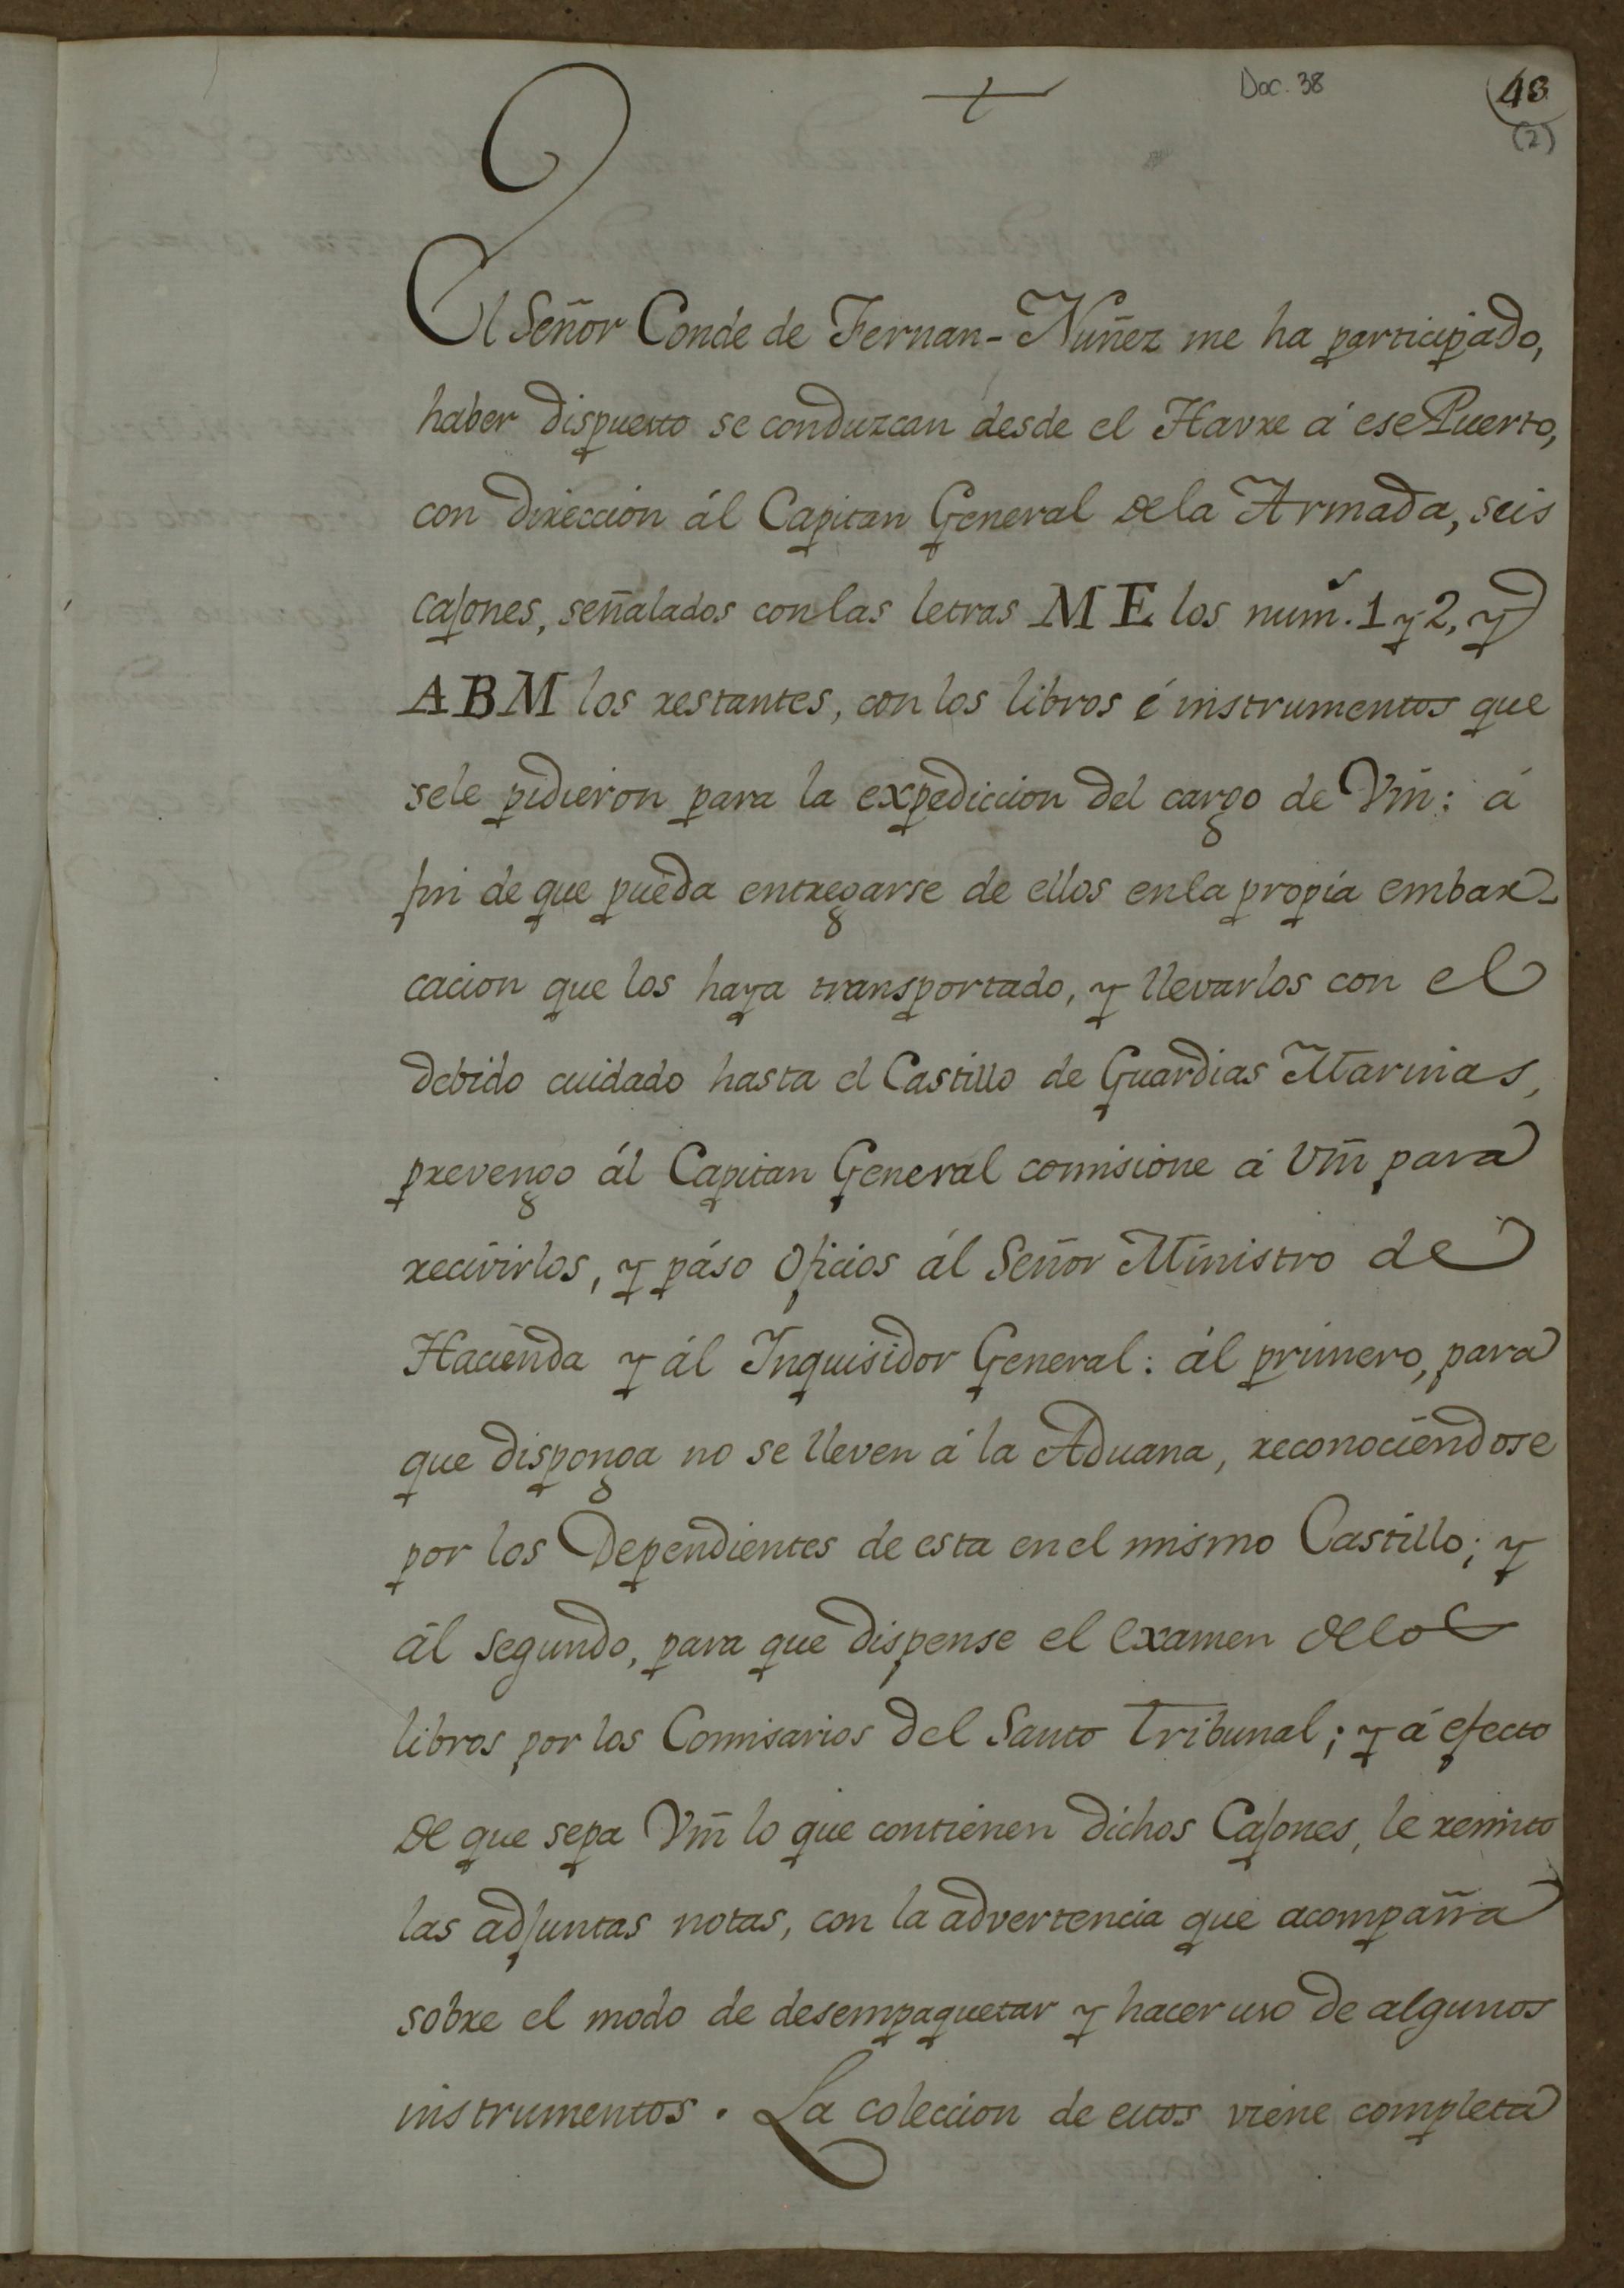 Doc. 38
48
(2)
El Señor Conde de Fernan-Nuñez me ha participado,
haber dispuesto se conduzcan desde el Havre á ese Puerto,
con direccion ál Capitan General dela Armada, seis
cajones, señalados con las letras M E los num.s 1 y 2, y
ABM los restantes, con los libros é instrumentos que
sele pidieron para la expediccion del cargo de Vm̃: á
fin de que puéda entregarse de ellos enla propia embar-
cacion que los haya transportado, y llevarlos con el
debido cuidado hasta el Castillo de Guardias Marinas,
prevengo ál Capitan General comisione á Vm̃ para
recivirlos, y páso Oficios ál Señor Ministro de
Haciénda y ál Inquisidor General: ál primero, para
que disponga no se lleven á la Aduana, reconociéndose
por los Dependientes de esta en el mismo Castillo; y
ál segundo, para que dispense el examen delos
libros por los Comisarios del Santo Tribunal; y á efecto
de que sepa Vm̃ lo que contienen dichos Cajones, le remito
las adjuntas notas, con la advertencia que acompaña
sobre el modo de desempaquetar y hacer uso de algunos
instrumentos. La coleccion de estos viene completa